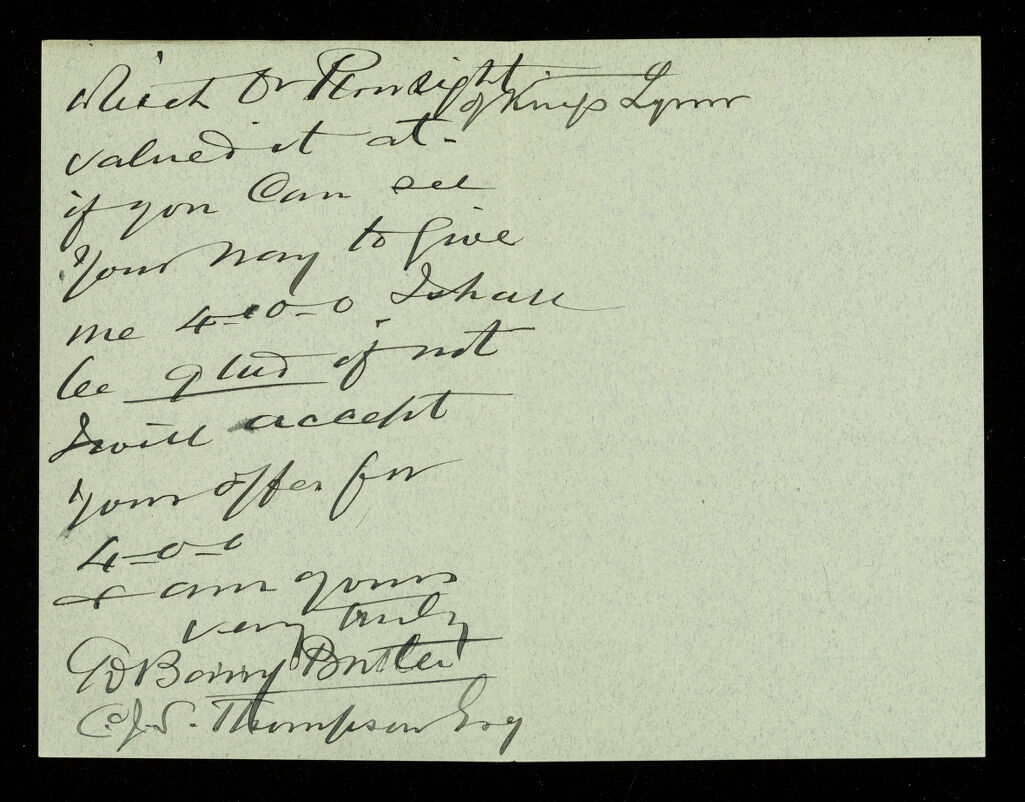 which Dr Plowright
of Kings Lynn
valued it at -
if you can see
your way to give
me 4-10-0 I shall
be glad if not
I will accept
your offer for
4-0-0
& am yours
very truly
Barry Butler
C.J.S. Thompson Esq